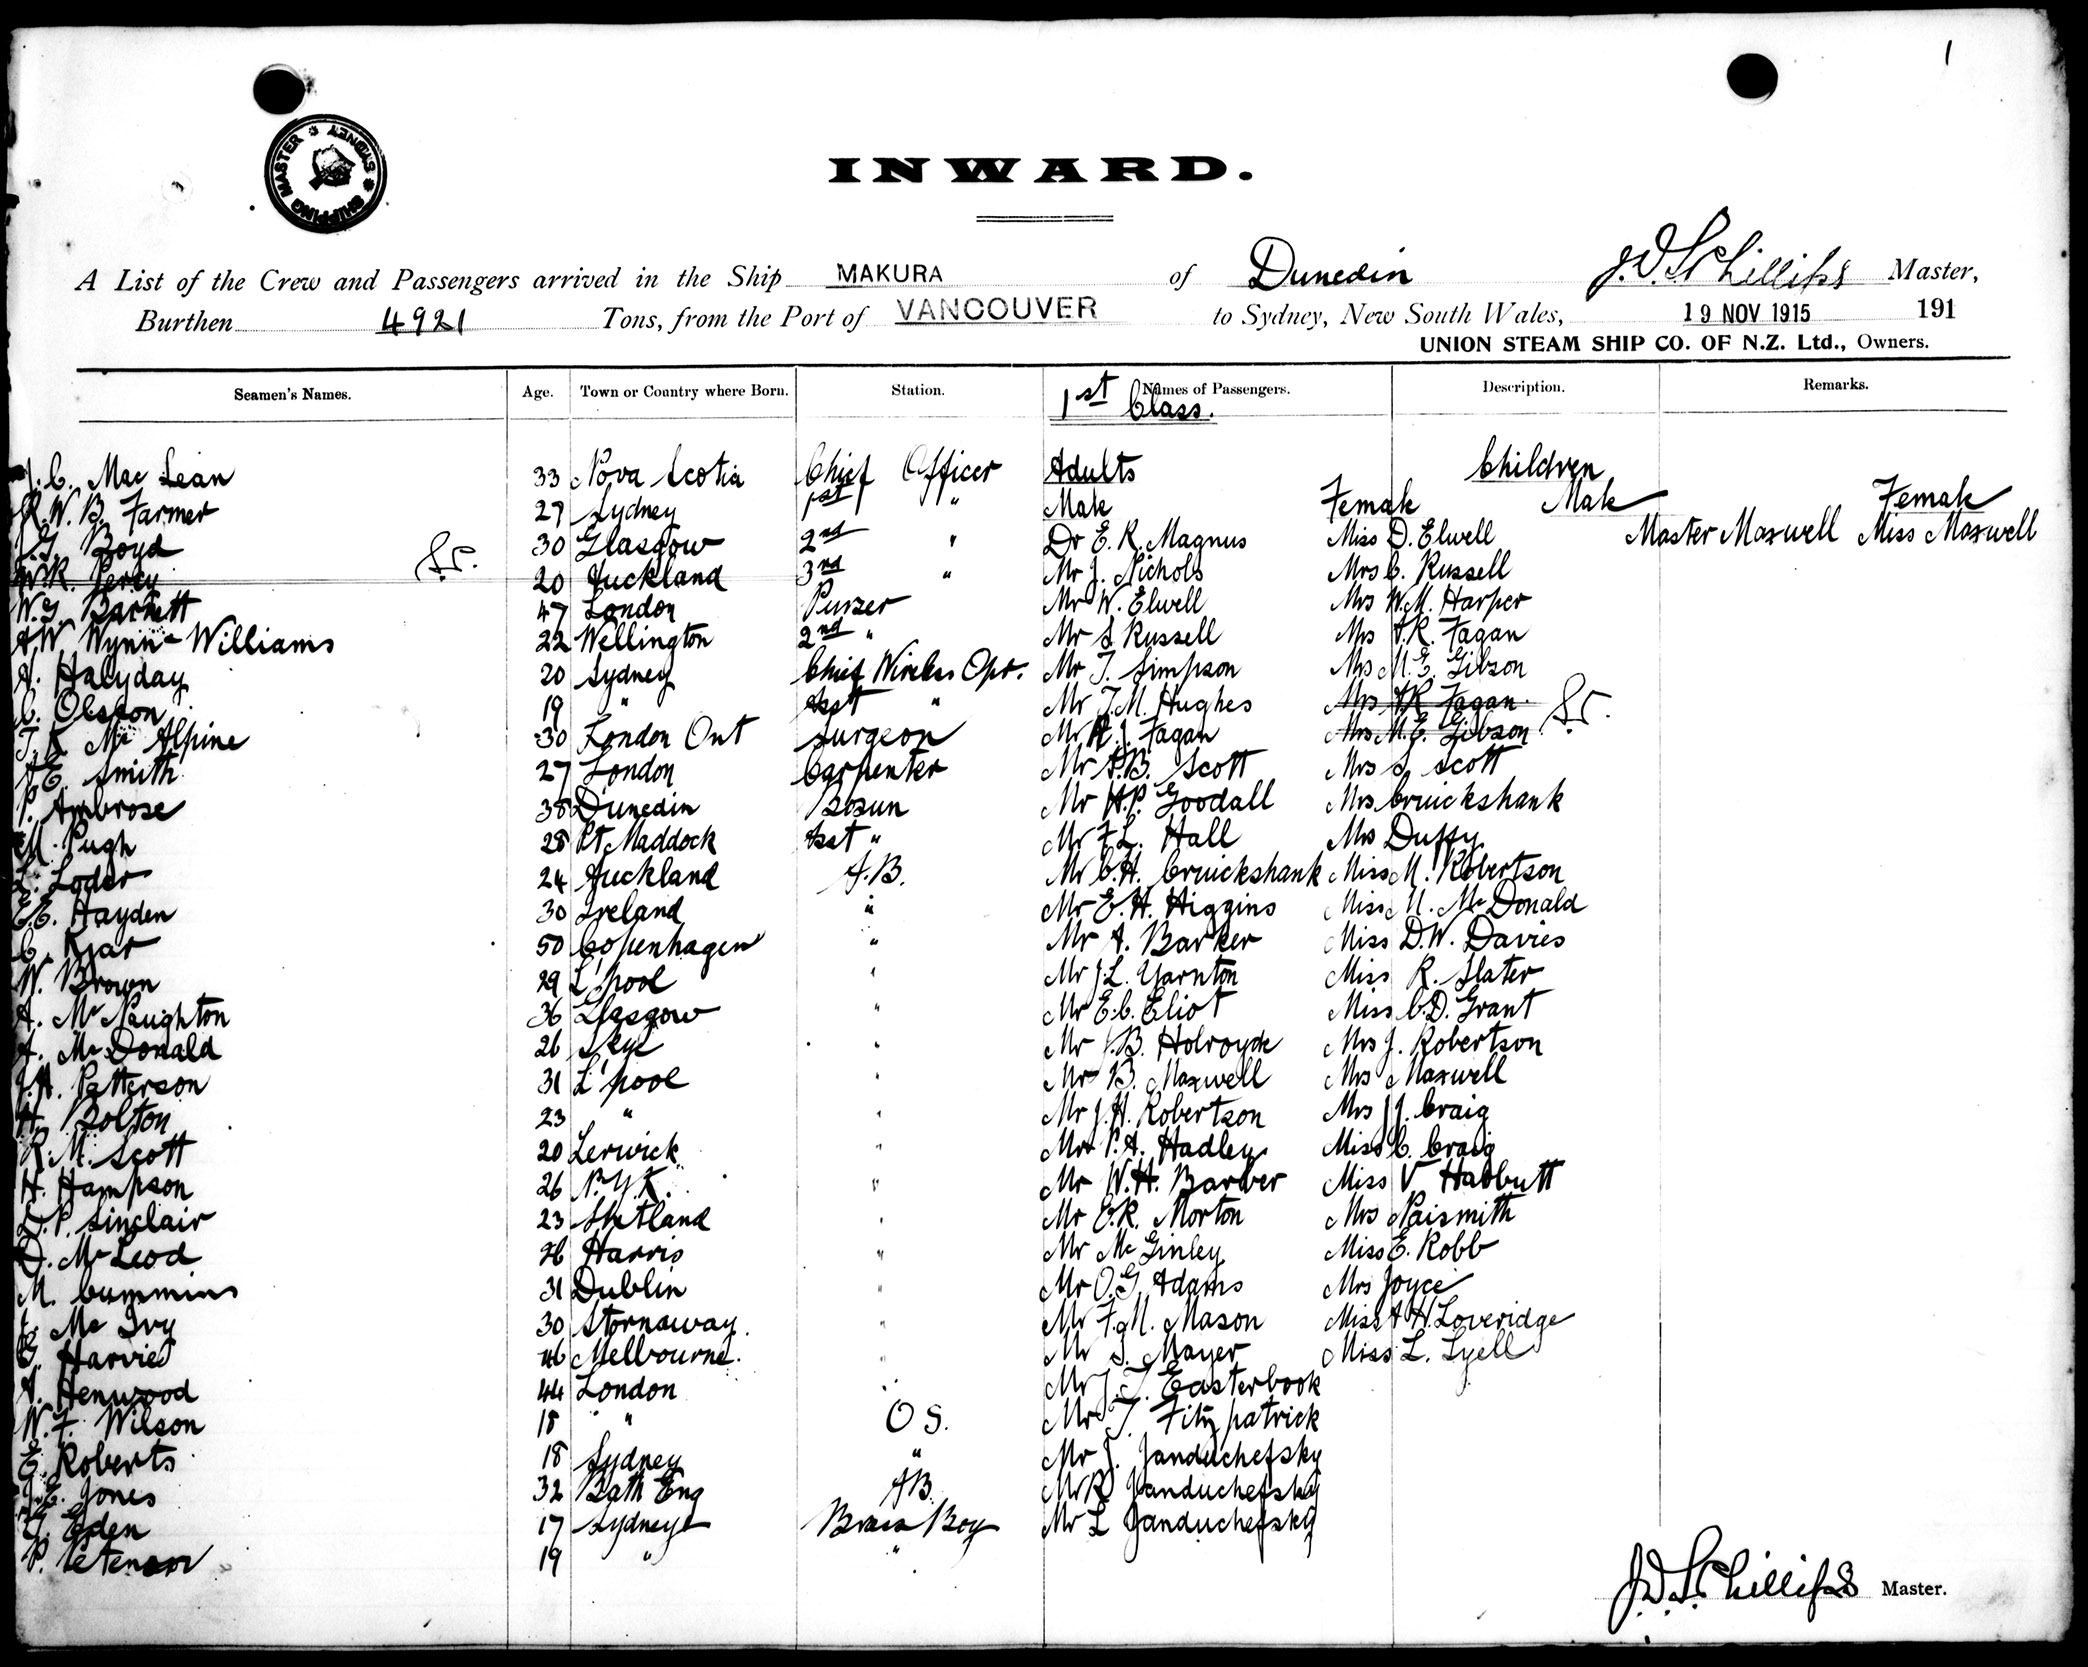 1
SHIPPING MASTER * SYDNEY *
INWARD.
A List of the Crew and Passengers arrived in the Ship MAKURA of Dunedin J.D.S. Phillips Master,
Burthen 4921 Tons, from the Port of VANCOUVER to Sydney, New South Wales, 19 NOV 1915 191
UNION STEAM SHIP CO. OF N.Z. Ltd., Owners.
Seamen's Names. Age. Town or Country where Born. Station. Names of Passengers. Description. Remarks.
1st Class.
C. Mac Lean 33 Nova Scotia Chief Officer Adults Children
R. W. B. Farmer 27 Sydney 1st " Male Female Male Female
G. Boyd 30 Glasgow 2nd " Dr E. R. Magnus Miss D. Elwell Master Maxwell Miss Maxwell
W.R. Percy 20 Auckland 3rd " Mr J. Nichols Mrs C. Russell
W.G. Barnett 47 London Purser Mr W. Elwell Mrs W.M. Harper
A.W. Wynn-Williams 22 Wellington 2nd " Mr S Russell Mrs A.R. Fagan
A. Halyday 20 Sydney Chief Wireless Opr. Mr T. Simpson Mrs M. E. Gibson
C. Olsson 19 " Asst " Mr T.M. Hughes Mrs A.R. Fagan
T. K. Mc Alpine 30 London Ont Surgeon Mr R. J. Fagan Mrs M.E. Gibson
A E. Smith 27 London Carpenter Mr A.B. Scott Mrs S Scott
P. Ambrose 38 Dunedin Bosun Mr H.P. Goodall Mrs Cruickshank
M. Pugh 28 Pt Maddock Asst " Mr F.L. Hall Mrs Duffy
L. Loder 24 Auckland A.B. Mr C.H. Cruickshank Miss M. Robertson
E. Hayden 30 Ireland " Mr E.H. Higgins Miss M. McDonald
C. Kjar 50 Copenhagen " Mr A. Barker Miss D.W. Davies
W. Brown 29 L'pool " Mr J.L. Yarnton Miss R. Slater
A. McNaughton 36 Glasgow " Mr E.C. Eliot Miss C.D. Grant
A. McDonald 26 Skye " Mr J.B. Holroyde Mrs J. Robertson
J.H. Patterson 31 L'pool " Mr B. Maxwell Mrs Maxwell
H. Bolton 23 " " Mr J.H. Robertson Mrs J J. Craig
R. M. Scott 20 Lerwick " Mr P.A. Hadley Miss C. Craig
H. Hampson 26 N.Y.K. " Mr W.H. Barber Miss V Habbutt
D. P. Sinclair 23 Shetland " Mr E.R. Morton Mrs Naismith
D. McLeod 26 Harris " Mr McGinley Miss E. Robb
M. Cummins 31 Dublin " Mr O.G. Adams Mrs Joyce
Mc Ivy 30 Stornaway. " Mr F. M. Mason Miss A H. Loveridge
G. Harvie 46 Melbourne. " Mr S. Mayer Miss L. Lyell
A. Henwood 44 London " Mr J. T. Easterbook
W. F. Wilson 18 " O S. Mr T. Fitzpatrick
E. Roberts 18 Sydney " Mr J. Janduchefsky
E. Jones 32 Bath Eng A B. Mr R Janduchefsky
G. Eden 17 Sydney Brass Boy Mr L Janduchefsky
P. Petersen 19 " "
J.D.S. Phillips Master.